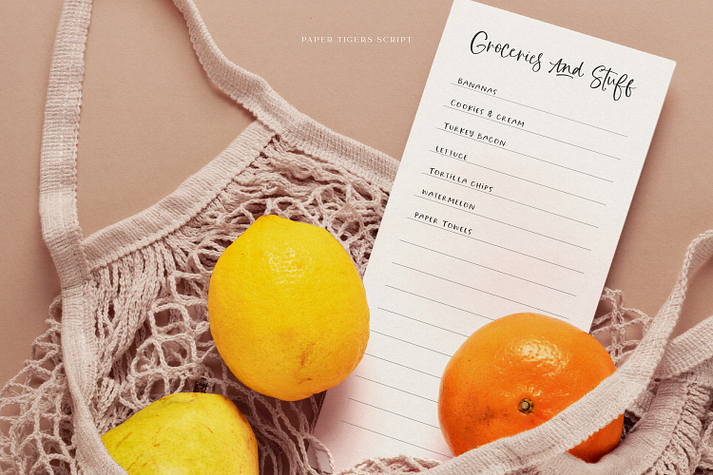 PAPER TIGERS SCRIPT
Groceries And Stuff
BANANAS
COOKIES & CREAM
TURKEY BACON
LETTUCE
TORTILLA CHIPS
WATERMELON
PAPER TOWELS